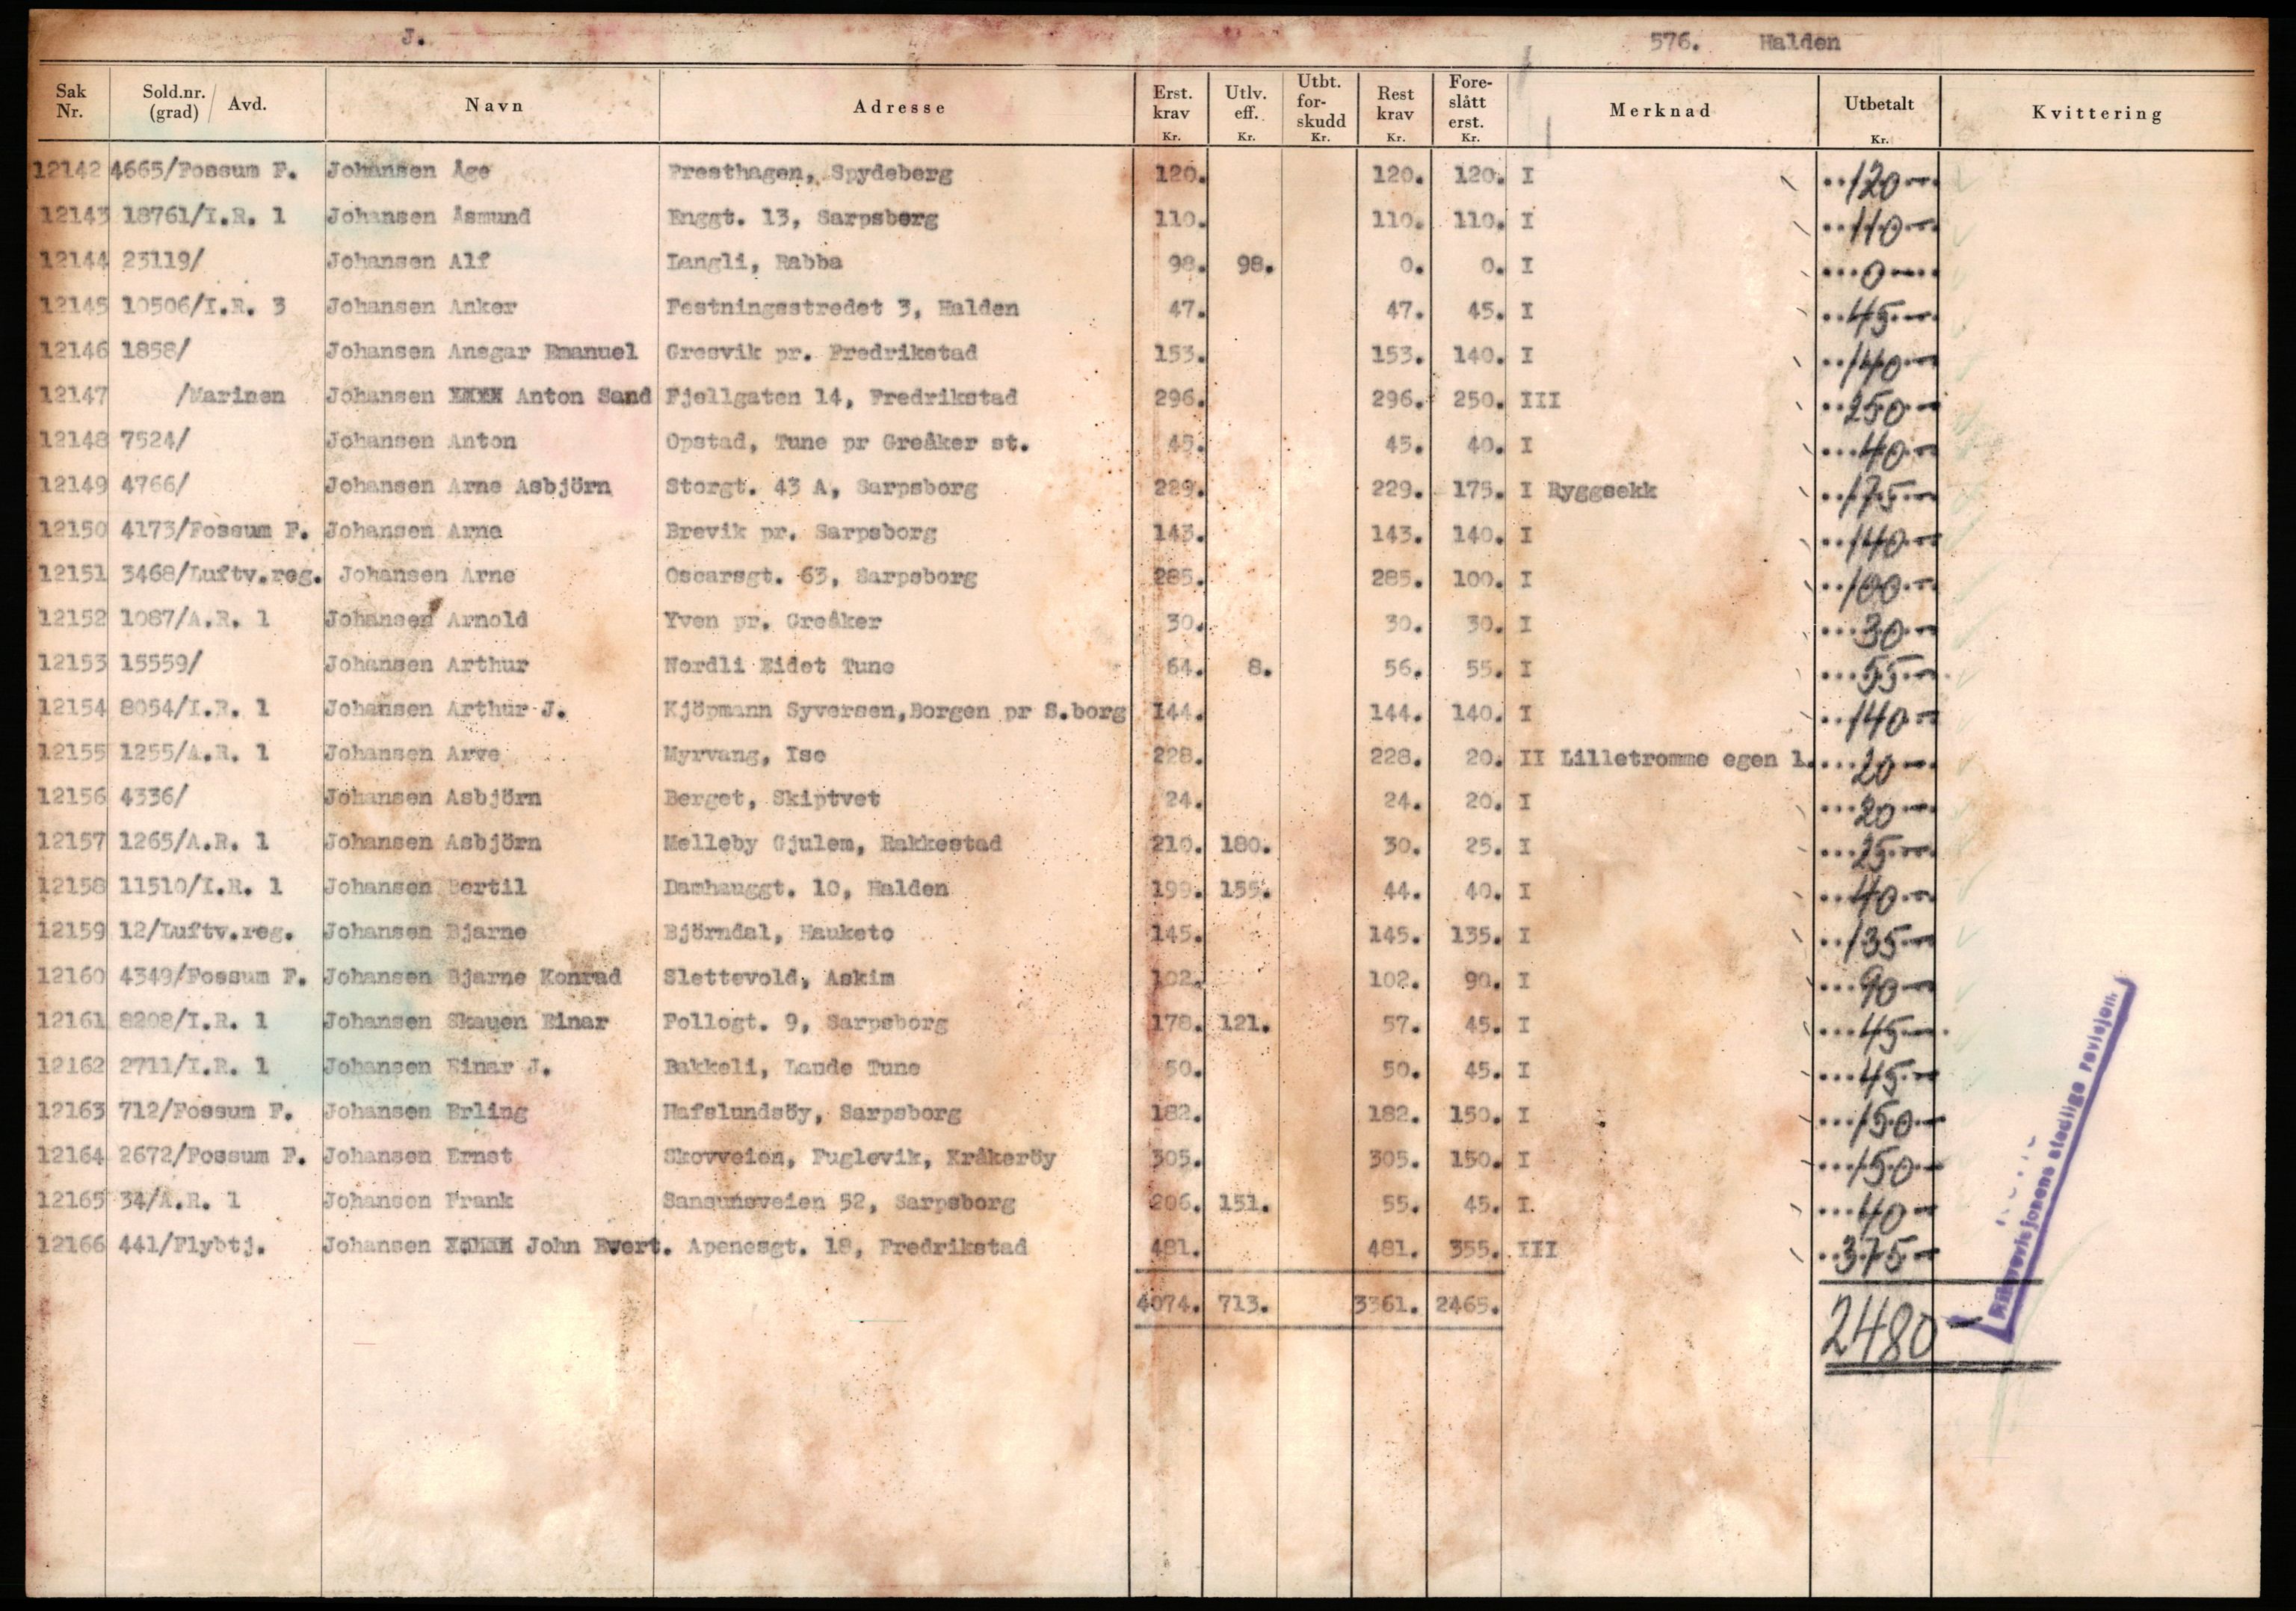 J. 576. Halden
Sak Nr. Sold.nr. (grad) / Avd. Navn Adresse Erst. krav Kr. Utlv. eff. Kr. Utbt. for-skudd Kr. Rest krav Kr. Fore-slått erst. Kr. Merknad Utbetalt Kr. Kvittering
12142 4665/Fossum F. Johansen Åge Presthagen, Spydeberg 120. 120. 120. I 120-
12143 18761/I.R. 1 Johansen Åsmund Enggt. 13, Sarpsborg 110. 110. 110. I 110-
12144 23119/ Johansen Alf Langli, Rabba 98. 98. 0. 0. I 0-
12145 10506/I.R. 3 Johansen Anker Festningsstredet 3, Halden 47. 47. 45. I 45-
12146 1858/ Johansen Ansgar Emanuel Gresvik pr. Fredrikstad 153. 153. 140. I 140-
12147 /Marinen Johansen Anton Sand Fjellgaten 14, Fredrikstad 296. 296. 250. III 250-
12148 7524/ Johansen Anton Opstad, Tune pr Greåker st. 45. 45. 40. I 40-
12149 4766/ Johansen Arne Asbjörn Storgt. 43 A, Sarpsborg 229. 229. 175. I Ryggsekk 175-
12150 4173/Fossum F. Johansen Arne Brevik pr. Sarpsborg 143. 143. 140. I 140-
12151 3468/Luftv.reg. Johansen Arne Oscarsgt. 63, Sarpsborg 285. 285. 100. I 100-
12152 1087/A.R. 1 Johansen Arnold Yven pr. Greåker 30. 30. 30. I 30-
12153 15559/ Johansen Arthur Nordli Eidet Tune 64. 8. 56. 55. I 55-
12154 8054/I.R. 1 Johansen Arthur J. Kjöpmann Syversen,Borgen pr S.borg 144. 144. 140. I 140-
12155 1255/A.R. 1 Johansen Arve Myrvang, Ise 228. 228. 20. II Lilletromme egen l. 20-
12156 4336/ Johansen Asbjörn Berget, Skiptvet 24. 24. 20. I 20-
12157 1265/A.R. 1 Johansen Asbjörn Melleby Gjulem, Rakkestad 210. 180. 30. 25. I 25-
12158 11510/I.R. 1 Johansen Bertil Damhauggt. 10, Halden 199. 155. 44. 40. I 40-
12159 12/Luftv.reg. Johansen Bjarne Björndal, Hauketo 145. 145. 135. I 135-
12160 4349/Fossum F. Johansen Bjarne Konrad Slettevold, Askim 102. 102. 90. I 90-
12161 8208/I.R. 1 Johansen Skauen Einar Follogt. 9, Sarpsborg 178. 121. 57. 45. I 45-
12162 2711/I.R. 1 Johansen Einar J. Bakkeli, Lande Tune 50. 50. 45. I 45-
12163 712/Fossum F. Johansen Erling Hafslundsöy, Sarpsborg 182. 182. 150. I 150-
12164 2672/Fossum F. Johansen Ernst Skovveien, Fuglevik, Kråkeröy 305. 305. 150. I 150-
12165 34/A.R. 1 Johansen Frank Sandunsveien 52, Sarpsborg 206. 151. 55. 45. I. 40-
12166 441/Flybtj. Johansen John Evert. Apenesgt. 18, Fredrikstad 481. 481. 355. III 375-
4074. 713. 3361. 2465. 2480-
Riksrevisjonens stedlige revisjon